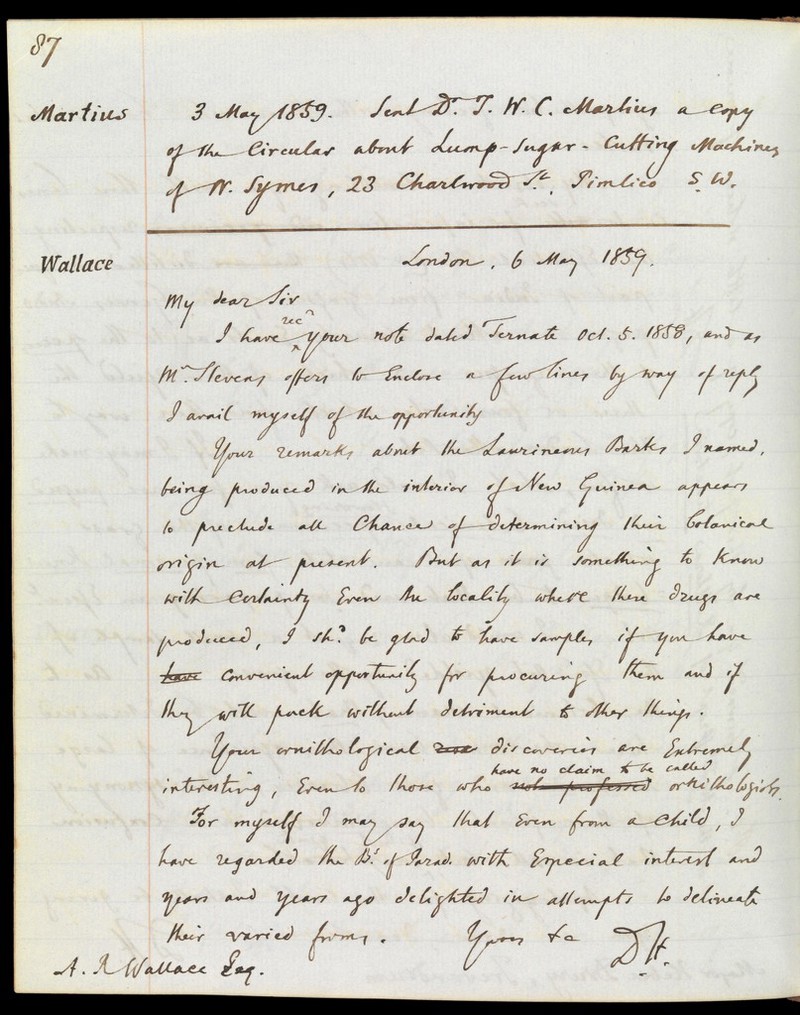 87
Martius
3 May 1859. Sent Dr. T. W. C. Martius a copy
of the Circular about Lump-Sugar-Cutting Machines
of W. Symes, 23 Charlwood St., Pimlico S.W.
Wallace
London, 6 May 1859.
My dear Sir
I have recd your note dated Ternate Oct. 5. 1858, and as
Mr. Stevens offers to Enclose a few lines by way of reply
I avail myself of the opportunity
Your remarks about the Laurineous Barks I named,
being produced in the interior of New Guinea appears
to preclude all Chance of determining their botanical
origin at present. But as it is something to Know
with Certainty Even the locality where these drugs are
produced, I shd. be glad to have samples if you have
have convenient opportunity for procuring them and if
they will pack without detriment to other things.
Your ornithological discoveries are Extremely
interesting, Even to those who not professed have no claim to be called ornithologists.
For myself I may say that Even from a Child, I
have regarded the Bs. of Parad. with Especial interest and
years and years ago delighted in attempts to delineate
their varied forms. Yours &c DH.
A. R Wallace Esq.